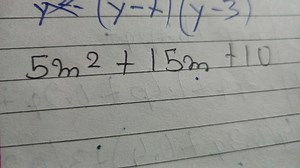 (y-1)(y-3)
5m² + 15m + 10